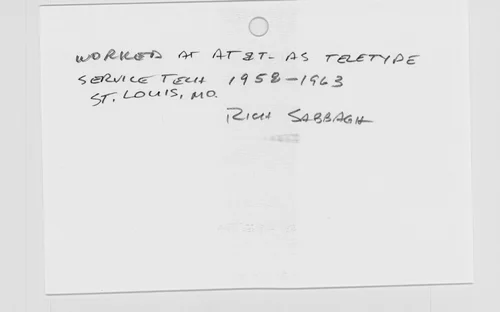 WORKED AT AT&T- AS TELETYPE
SERVICE TECH 1958-1963
ST. LOUIS, MO.
RICH SABBAGH